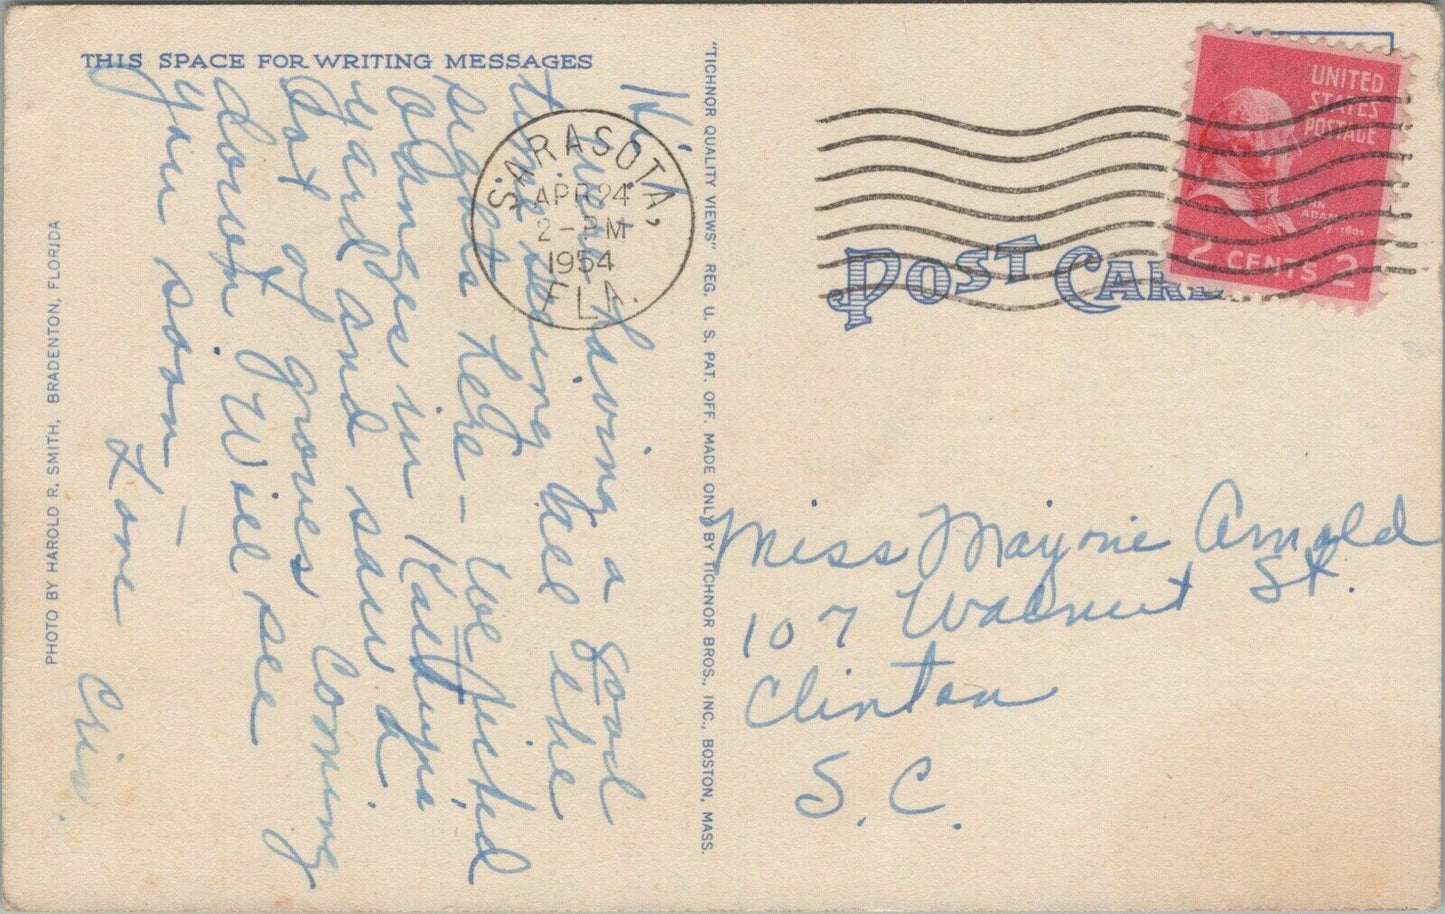 THIS SPACE FOR WRITING MESSAGES
Hi,
Sure having a good
time seeing all the
sights here - We picked
oranges in Kathryn's
yard and saw a
lot of groves coming
down. Will see
you soon -
Love
Cris.
PHOTO BY HAROLD R. SMITH, BRADENTON, FLORIDA
"TICHNOR QUALITY VIEWS" REG. U. S. PAT. OFF. MADE ONLY BY TICHNOR BROS., INC., BOSTON, MASS.
SARASOTA,
APR 24
2 - PM
1954
FLA.
UNITED
STATES
POSTAGE
ADAMS
2 CENTS 2
POST CARD
Miss Marjorie Arnold
107 Walnut St.
Clinton
S. C.